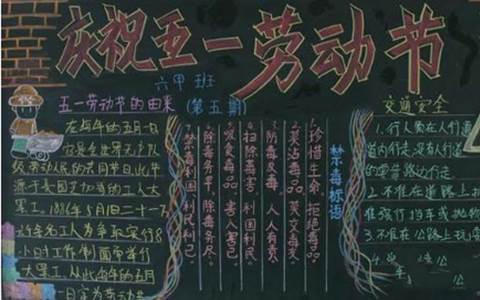 庆祝五一劳动节
六甲班
(第五期)
五一劳动节的由来
在每年的五月一
日是全世界无产阶
级劳动人民的共同节日,此节
源于美国芝加哥的工人大
罢工,1886年5月1日二十一万
六千名工人为争取实行8
小时工作制而举行
大罢工,从此每年的五月
一日定为劳动节
禁毒标语
1.珍惜生命 拒绝毒品
2.莫沾毒品 莫交毒友
3.防毒反毒 人人有责
4.扫除毒害 利国利民
5.吸食毒品 害人害己
6.除毒务早,除毒务尽
7.禁毒利国利民利己
交通安全
1.行人须在人行道
道内行走,没有人行道
的要靠路边行走
2.不准在道路上扒
准强行拦车或抛物
3.不准在公路上玩
4.
车
公